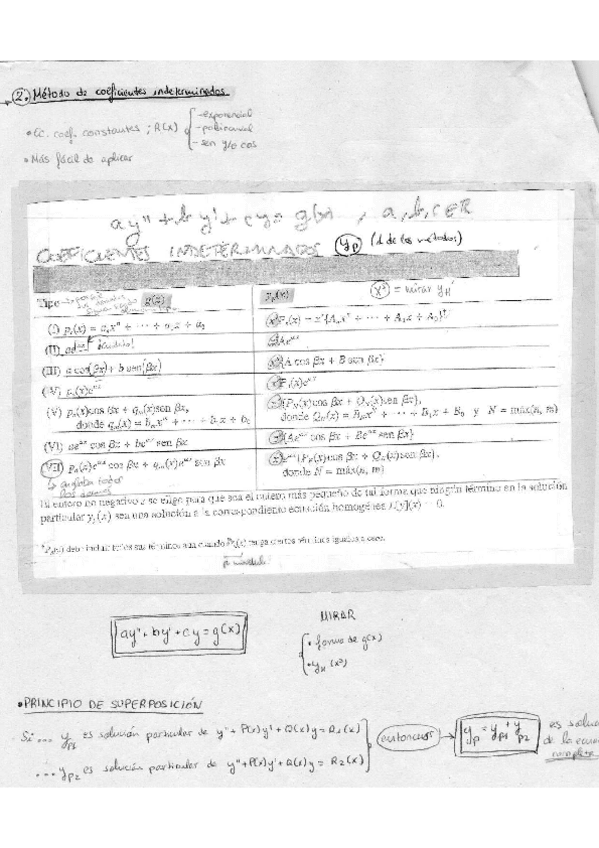 2. Método de coeficientes indeterminados
• Ec. coef. constantes ; R(x) { - exponencial
- polinomial
- sen y/o cos
• Más fácil de aplicar
ay'' + by' + cy = g(x) , a, b, c ∈ R
COEFICIENTES INDETERMINADOS yp (1 de los métodos)
Tipo g(x) yp(x) (x^s) = mirar yH
(I) pn(x) = anx^n + ··· + a1x + a0 x^s Pn(x) = x^s{Anx^n + ··· + A1x + A0}†
(II) ae^αx x^s Ae^αx
(III) a cos βx + b sen βx x^s{A cos βx + B sen βx}
(IV) pn(x)e^αx x^s Pn(x)e^αx
(V) pn(x)cos βx + qm(x)sen βx, x^s{PN(x)cos βx + QN(x)sen βx},
donde qm(x) = bmx^m + ··· + b1x + b0 donde QN(x) = BNx^N + ··· + B1x + B0 y N = máx(n, m)
(VI) ae^αx cos βx + be^αx sen βx x^s{Ae^αx cos βx + Be^αx sen βx}
(VII) pn(x)e^αx cos βx + qm(x)e^αx sen βx x^s e^αx{PN(x)cos βx + QN(x)sen βx},
donde N = máx(n, m)
engloba todos
los demás
El entero no negativo s se elige para que sea el entero más pequeño de tal forma que ningún término en la solución
particular yp(x) sea una solución a la correspondiente ecuación homogénea L[y](x) = 0.
†Pn(x) debe incluir todos sus términos aun cuando pn(x) tenga ciertos términos iguales a cero.
ay'' + by' + cy = g(x)
MIRAR
• forma de g(x)
• yH (x^s)
• PRINCIPIO DE SUPERPOSICIÓN
Si ... yp1 es solución particular de y'' + P(x)y' + Q(x)y = R1(x)
entonces → yp = yp1 + yp2 es
de la
... yp2 es solución particular de y'' + P(x)y' + Q(x)y = R2(x)